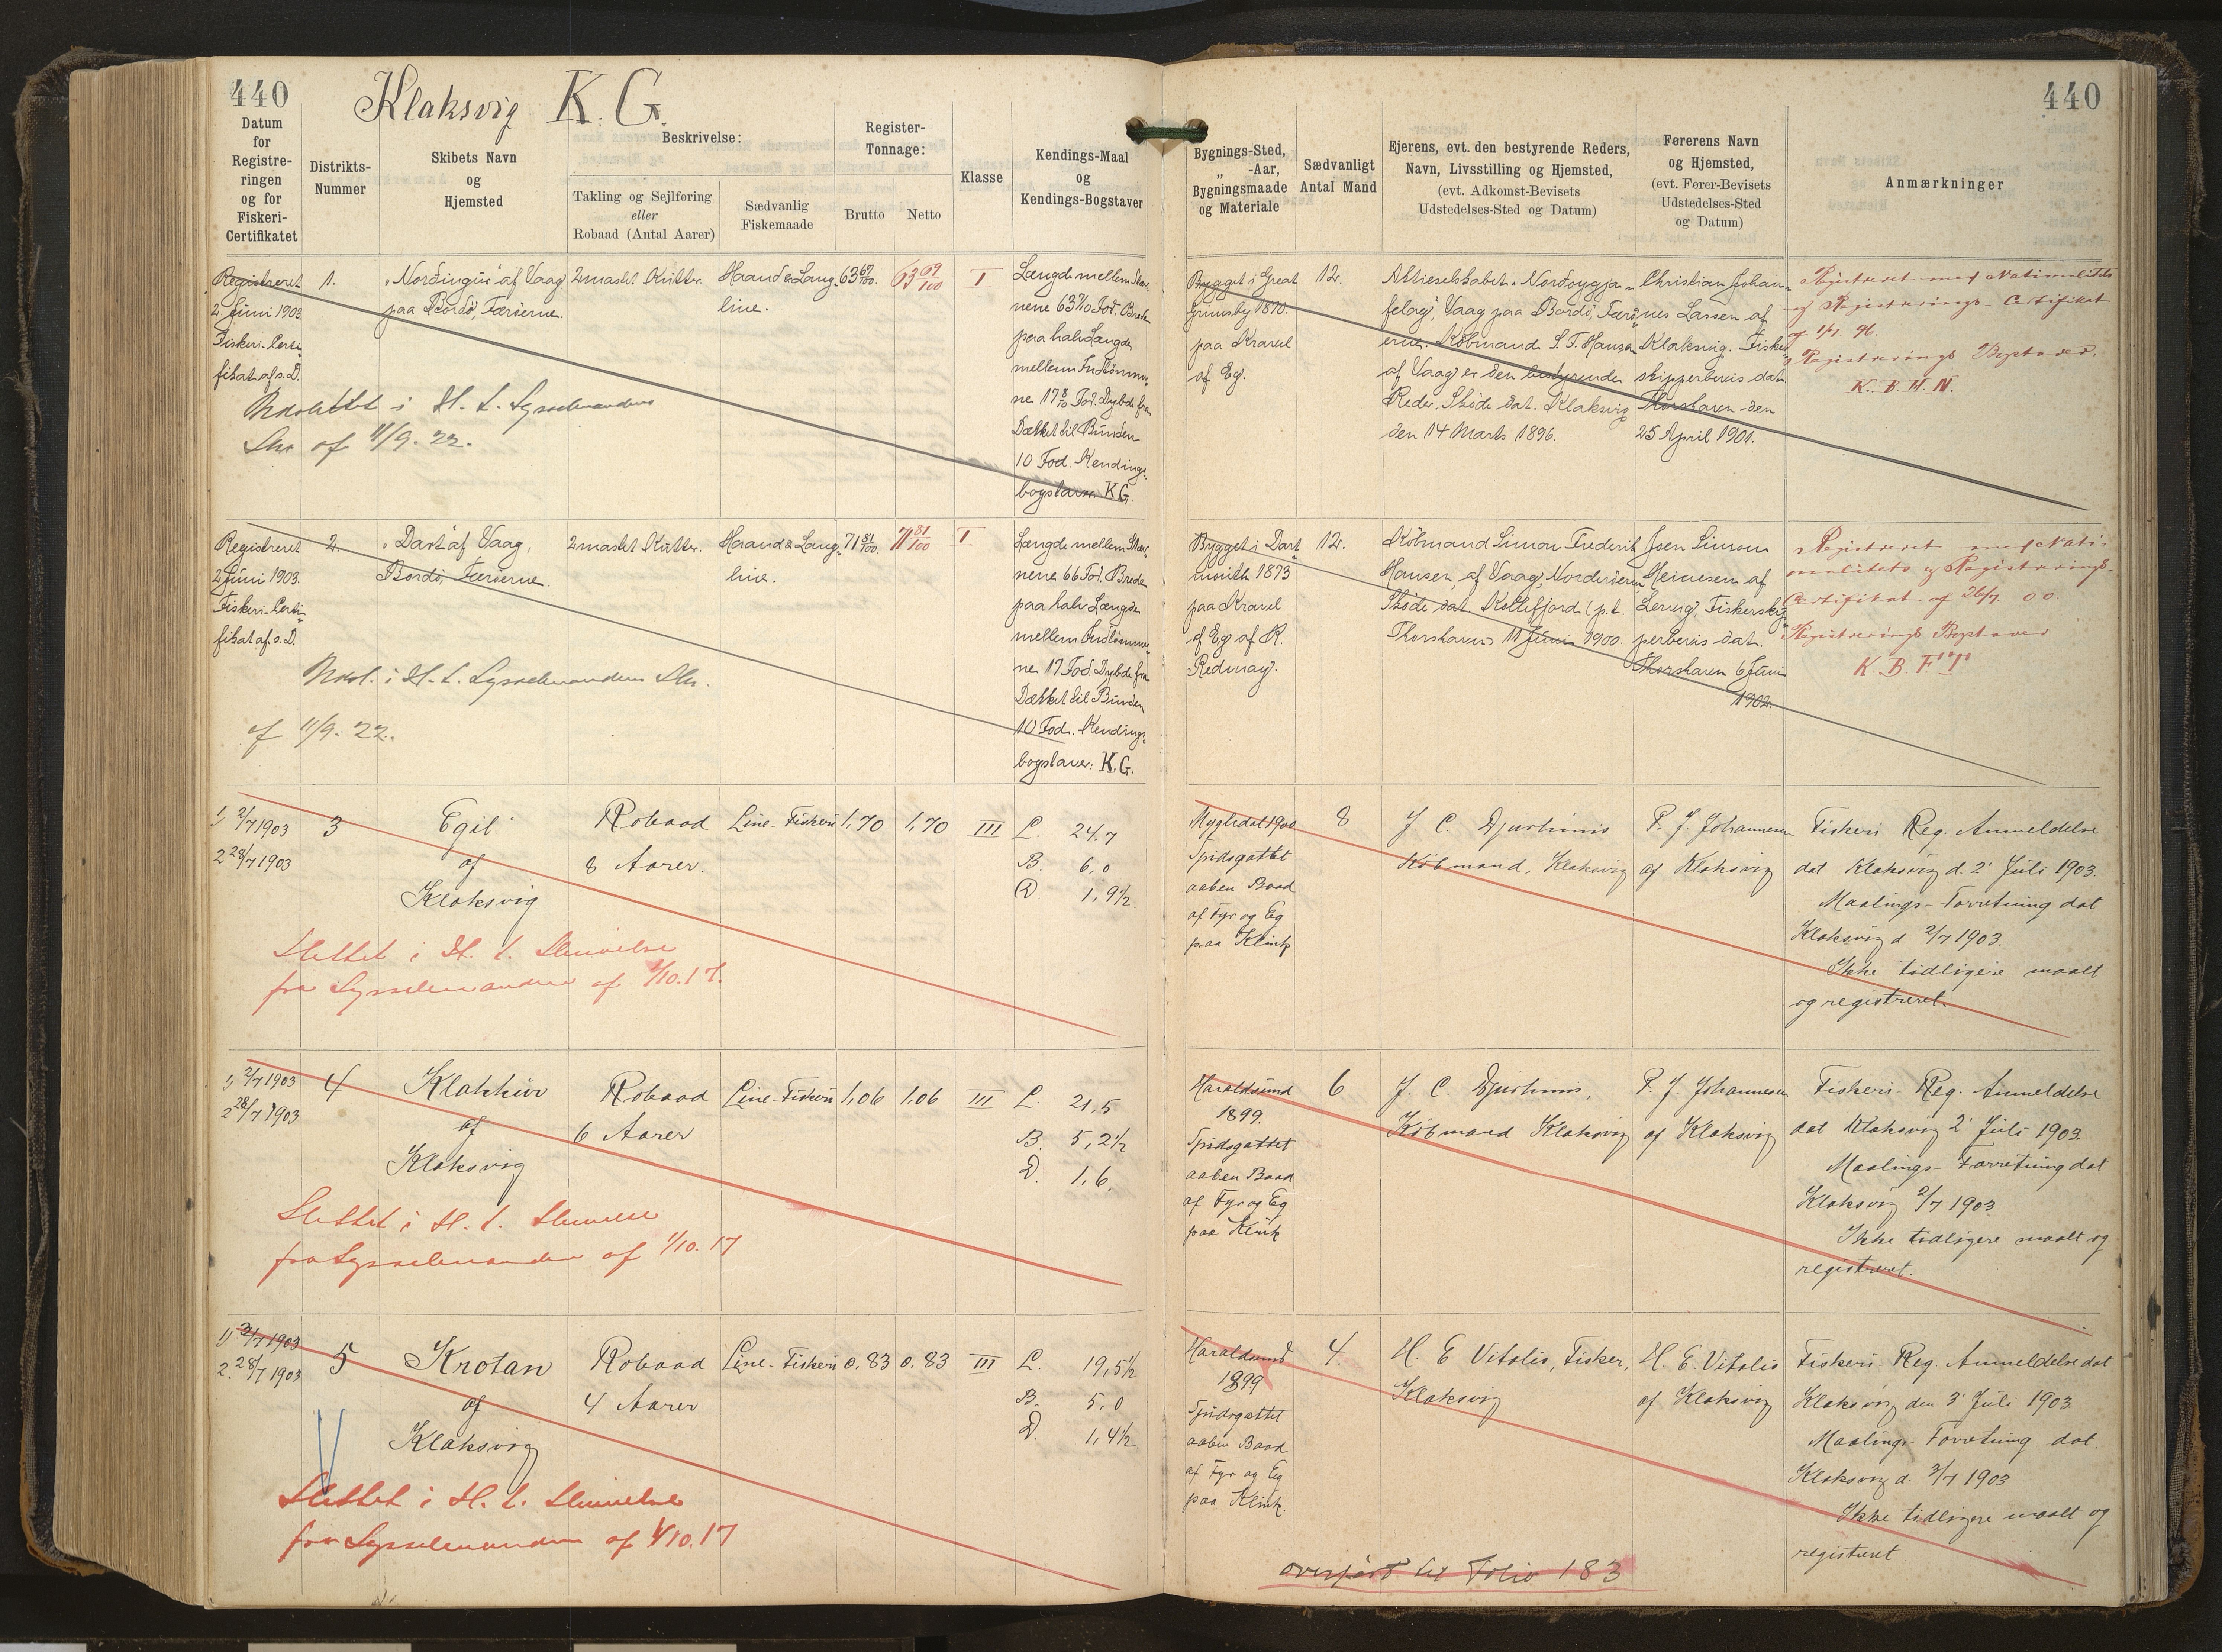 440
Klaksvig K. G.
440
Datum
for
Registre-
ringen
og for
Fiskeri-
Certifikatet
Distrikts-
Nummer
Skibets Navn
og
Hjemsted
Beskrivelse:
Takling og Sejlføring
eller
Robaad (Antal Aarer)
Sædvanlig
Fiskemaade
Register-
Tonnage:
Brutto
Netto
Klasse
Kendings-Maal
og
Kendings-Bogstaver
Bygnings-Sted,
„ -Aar,
Bygningsmaade
og Materiale
Sædvanligt
Antal Mand
Ejerens, evt. den bestyrende Reders,
Navn, Livsstilling og Hjemsted,
(evt. Adkomst-Bevisets
Udstedelses-Sted og Datum)
Førerens Navn
og Hjemsted,
(evt. Fører-Bevisets
Udstedelses-Sted
og Datum)
Anmærkninger
Registreret
2. Juni 1903.
Fiskeri-Certi-
fikat af s. D.
1.
„Nordingur" af Vaag
paa Bordö, Færöerne.
2mastet Kutter.
Haand & Lang-
line.
63 69/100.
63 69/100
I
Længde mellem Stæv-
nene 63 7/10 Fod. Brede
paa halv Længde
mellem Indtömmer-
ne 17 8/10 Fod. Dybde fra
Dækket til Bunden
10 Fod. Kendings-
bogstaver K.G.
Bygget i Great
Grimsby 1870.
paa Kravel
af Eg.
12.
Aktieselskabet „Nordoyggja-
felag", Vaag paa Bordö, Færö-
erne. Köbmand S. F. Hansen
af Vaag er den bestyrende
Reder. Sköde dat. Klaksvig
den 14 Marts 1896.
Christian Johan-
nes Larsen af
Klaksvig. Fisker-
skipperbevis dat.
Thorshavn den
25 April 1901.
Registreret med Nationalitets
og Registrerings-Certifikat
af 1/7. 96.
Registrerings Bogstaver.
K. B. H. N.
Udslettet i H. t. Sysselmandens
Skr. af 11/9. 22.
Registreret
2 Juni 1903.
Fiskeri-Certi-
fikat af s. D.
2.
„Dart" af Vaag,
Bordö, Færöerne.
2mastet Kutter.
Haand & Lang-
line.
71 81/100.
71 81/100
I
Længde mellem Stæv-
nene 66 Fod. Brede
paa halv Længde
mellem Indtömmer-
ne 17 Fod. Dybde fra
Dækket til Bunden
10 Fod. Kendings-
bogstaver: K.G.
Bygget i Dart-
mouth 1873
paa Kravel
af Eg af R.
Redmay.
12.
Köbmand Simon Frederik
Hansen af Vaag, Norderöerne
Sköde dat Kollefjord (p.t.
Thorshavn) 11 Juni 1900.
Joen Simon
Heinesen af
Lervig, Fiskerskip-
perbevis dat.
Thorshavn 6 Juni
1902.
Registreret med Nati-
onalitets og Registrerings-
Certifikat af 26/7. 00.
Registrerings Bogstaver
K. B. F. T.
Udsl. i H. t. Sysselmandens Skr.
af 11/9. 22.
1) 2/7 1903
2 28/7 1903
3
Egil
af
Klaksvig
Robaad
8 Aarer.
Line-Fiskeri
1,70
1,70
III
L. 24,7
B. 6,0
D. 1,9½
Mygledal 1900
Spidsgattet
aaben Baad
af Fyr og Eg
paa Klink
8
J. C. Djurhuus
Köbmand, Klaksvig
P. J. Johannesen
af Klaksvig
Fiskeri Reg. Anmeldelse
dat Klaksvig d. 2' Juli 1903.
Maalings-Forretning dat
Klaksvig d 2/7 1903.
Ikke tidligere maalt
og registreret.
Slettet i H. t. Skrivelse
fra Sysselmanden af 1/10. 17.
1) 2/7 1903
2 28/7 1903
4
Klakkur
af
Klaksvig
Robaad
6 Aarer
Line-Fiskeri
1,06
1,06
III
L. 21,5
B. 5,2½
D. 1,6
Haraldsund
1899.
Spidsgattet
aaben Baad
af Fyr og Eg
paa Klink
6
J. C. Djurhuus,
Köbmand Klaksvig
P. J. Johannesen
af Klaksvig
Fiskeri Reg. Anmeldelse
dat Klaksvig 2' Juli 1903.
Maalings-Forretning dat
Klaksvig 2/7 1903
Ikke tidligere maalt og
registreret.
Slettet i H. t. Skrivelse
fra Sysselmanden af 1/10. 17
1) 3/7 1903
2. 28/7 1903
5
Krotan
af
Klaksvig
Robaad
4 Aarer
Line-Fiskeri
0.83
0.83
III
L. 19,5½
B. 5,0
D. 1,4½
Haraldsund
1899
Spidsgattet
aaben Baad
af Fyr og Eg
paa Klink.
4.
H. E Vitalis, Fisker,
Klaksvig
H. E. Vitalis
af Klaksvig
Fiskeri Reg. Anmeldelse dat
Klaksvig den 3' Juli 1903
Maalings Forretning dat.
Klaksvig d. 3/7 1903
Ikke tidligere maalt og
registreret
Slettet i H. t. Skrivelse
fra Sysselmanden af 1/10. 17
overført til Folio 183